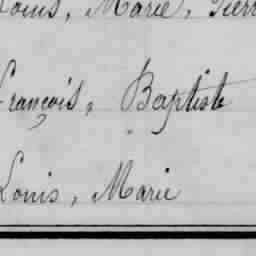 Louis, Marie, Pierre
François, Baptiste
Louis, Marie